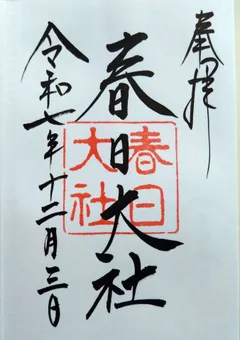 奉拝
春日大社
春日
大社
令和七年十二月三日